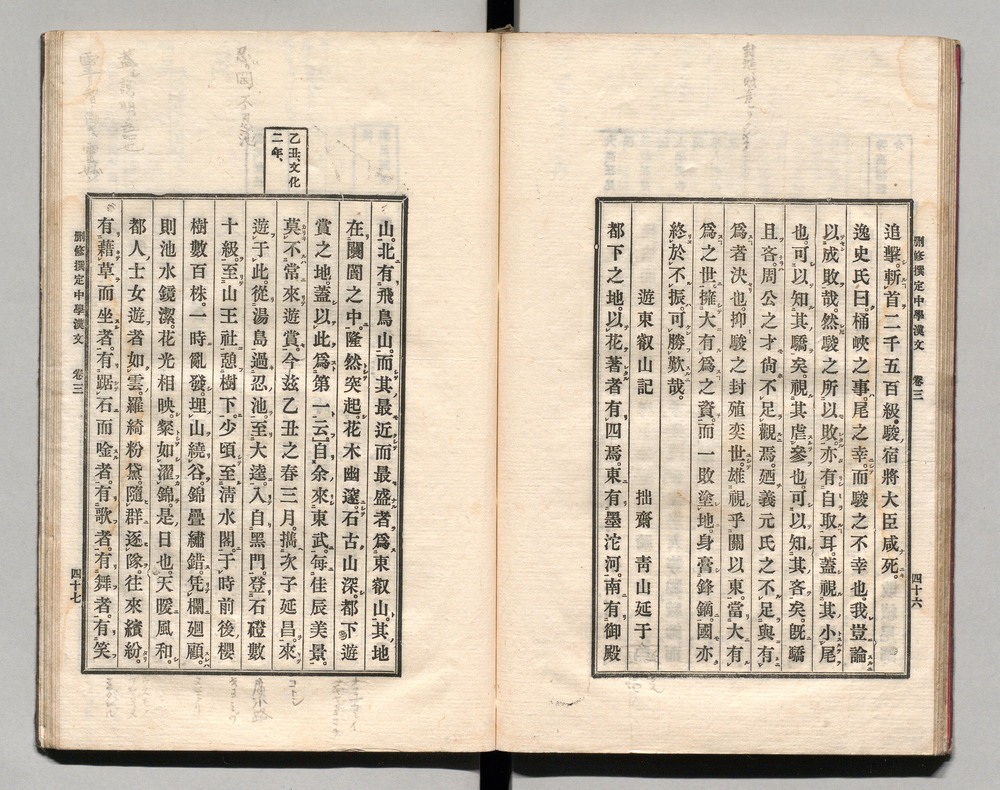 刪修撰定中學漢文 卷三 四十六
追擊。斬首二千五百級。駿宿將大臣咸死。
逸史氏曰。桶峽之事。尾之幸。而駿之不幸也。我豈論
以成敗哉。然駿之所以敗。亦有自取耳。蓋視其小尾
也。可以知其驕矣。視其虐參也。可以知其吝矣。既驕
且吝。周公之才尙不足觀焉。廼義元氏之不足與有
爲者決也。抑駿之封殖奕世。雄視乎關以東。當大有
爲之世。擁大有爲之資。而一敗塗地。身膏鋒鏑。國亦
終於不振。可勝歎哉。
遊東叡山記 拙齋 靑山延于
都下之地。以花著者有四焉。東有墨沱河。南有御殿
乙丑、文化
二年、
山。北有飛鳥山。而其最近而最盛者爲東叡山。其地
在闤闠之中。隆然突起。花木幽邃。石古山深。都下遊
賞之地。蓋以此爲第一云。自余來東武。每佳辰美景。
莫不常來遊賞。今玆乙丑之春三月。攜次子延昌。來
遊于此。從湯島過忍池。至大逵。入自黑門。登石磴數
十級。至山王社。憩樹下。少頃至淸水閣。于時前後櫻
樹數百株。一時亂發。埋山繞谷。錦疊繡錯。凭欄廻顧。
則池水鏡潔。花光相映。粲如濯錦。是日也。天暖風和。
都人士女遊者如雲。羅綺粉黛。隨群逐隊。往來繽紛。
有藉草而坐者。有踞石而唫者。有歌者。有舞者。有笑
刪修撰定中學漢文 卷三 四十七